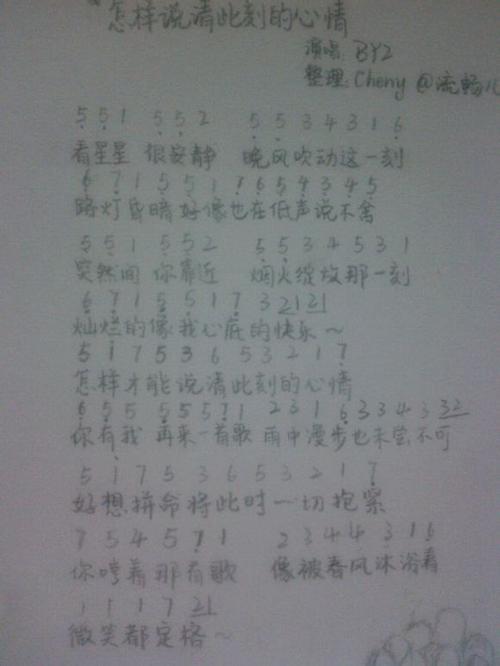 怎样说清此刻的心情
演唱: BY2
整理: Cheny @流畅儿
5 5 1 5 5 2 5 5 3 4 3 1 6
看星星 很安静 晚风吹动这一刻
6 7 1 5 5 1 7 6 5 4 3 4 5
路灯昏暗好像也在低声说不舍
5 5 1 5 5 2 5 5 3 4 5 3 1
突然间 你靠近 烟火绽放那一刻
6 7 1 5 5 1 7 3 21 21
灿烂的像我心底的快乐~
5 1 7 5 3 6 5 3 2 1 7
怎样才能说清此刻的心情
6 5 5 5 5 5 7 1 2 3 1 6 3 3 4 3 32
你有我 再来一首歌 雨中漫步也未尝不可
5 1 7 5 3 6 5 3 2 1 7
好想拼命将此时一切抱紧
7 5 4 5 7 1 2 3 4 4 3 1 6
你哼着那首歌 像被春风沐浴着
1 1 1 7 21
微笑都定格~